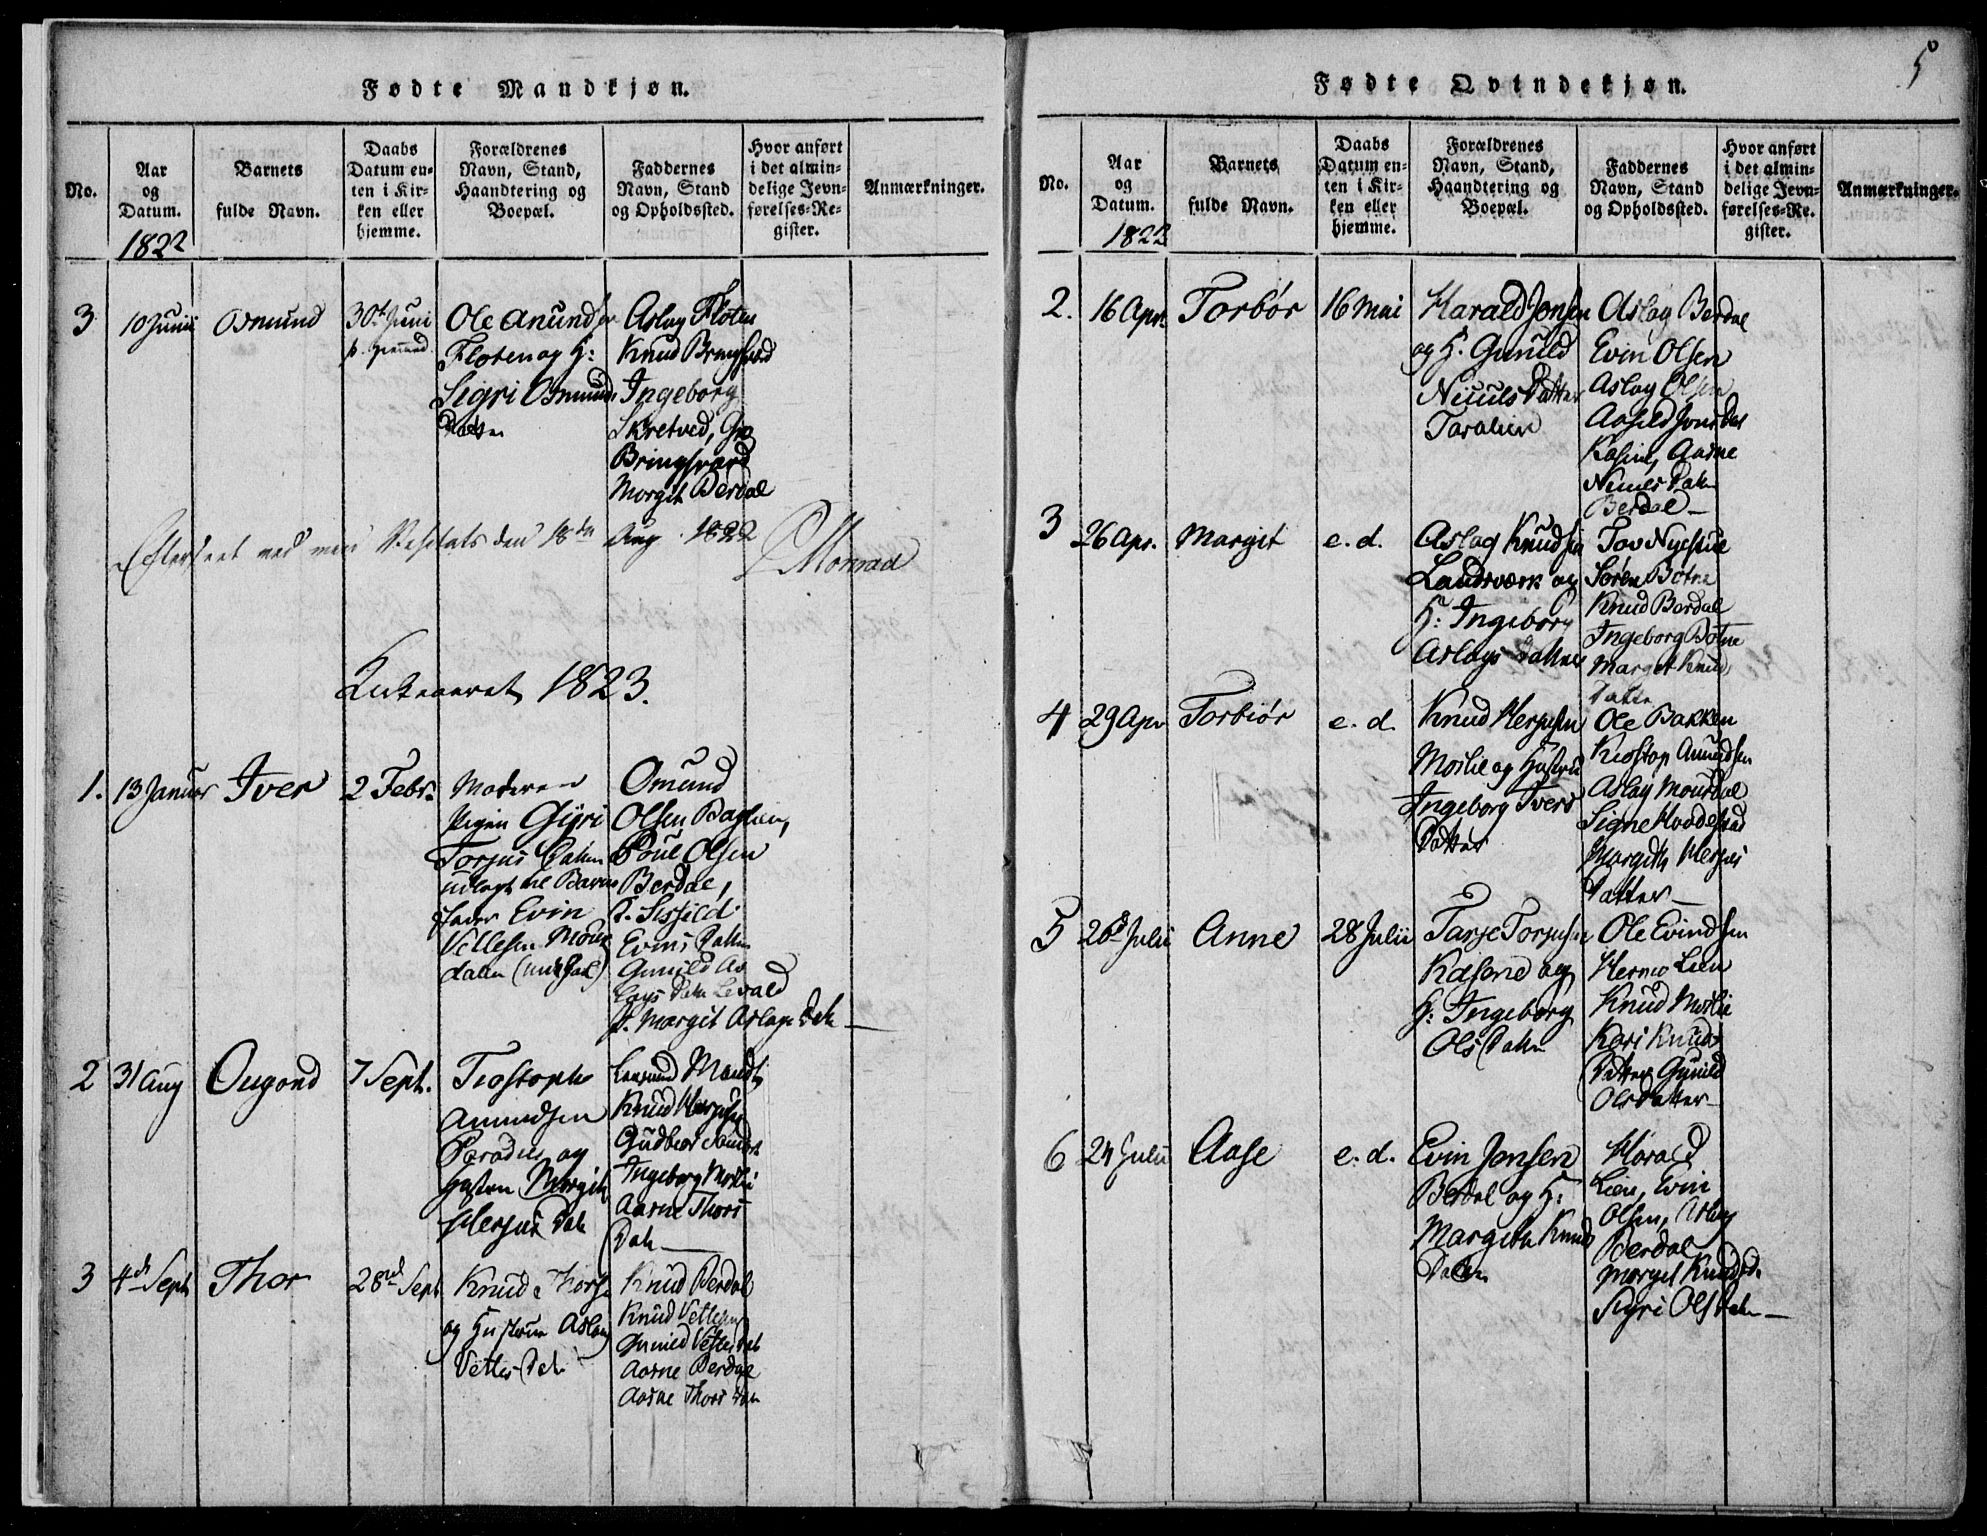 Fødte Mandkjøn.
No.
Aar
og
Datum.
1822
Barnets
fulde Navn.
Daabs
Datum en-
ten i Kir-
ken eller
hjemme.
Forældrenes
Navn, Stand,
Haandtering og
Boepæl.
Faddernes
Navn, Stand
og Opholdssted.
Hvor anført
i det almin-
delige Jevn-
førelses-Re-
gister.
Anmærkninger.
3
10 Junii
Osmund
30t Juni
Ole Anundsen
Floten og H:
Sigri Osmunds
Datter
Aslag Floten
Knud Bringsværd
Ingeborg
Skretved, Gro
Bringsværd
Morgit Berdal
Efterseet ved min Visitats den 18de Aug. 1822
Monrad
Kirkeaaret 1823.
1.
13 Januar
Iver
2 Febr.
Moderen
Pigen Gyri
Torjus Datter
udlagt til Barne
Fader Evin
Vetlesen Mours
dalen
Omund
Olsen Baglien,
Poul Olsen
Berdal,
Evins Datter
Gunild As
lags Datter
P. Margit Aslags Dat.
2
31 Aug
Ougond
7 Sept.
Tiostoph
Amundsen
Paradiis og
Hustru Morgith
Herjus Dat
Mandt
Knud Herjusen
Gudbior
Ingeborg Moslie
Aarne Thors
Dat.
3
4de Sept
Thor
28nd Sept
Knud Thors
og Hustrue Aslaug
Vetles Dat
Knud Berdal
Knud Vetlesen
Gunild Vetles Dat
Aarne Berdal
Aarne Thors Dat
5
Fødte Qvindekjøn.
No.
Aar
og
Datum.
1822
Barnets
fulde Navn.
Daabs
Datum en-
ten i Kir-
ken eller
hjemme.
Forældrenes
Navn, Stand,
Haandtering og
Boepæl.
Faddernes
Navn, Stand
og Opholdssted.
Hvor anført
i det almin-
delige Jevn-
førelses-Re-
gister.
Anmærkninger.
2.
16 Apr.
Torbør
16 Mai
Harald Jonsen
og H. Gunild
Niuls Datter
Taralien
Aslag Berdal
Evin Olsen
Aslag Olsen
Aasild Jons Dat
Kasine, Aarne
Niuls Datter
Berdal
3
26 Apr.
Margit
e. d.
Aslag Knudsen
Landsværk og
H: Ingeborg
Aslags Datter
Tov Nystue
Søren Botne
Knud Berdal
Ingeborg Botne
Marget Knuds
Datter
4
29 Apr
Torbiør
e. d.
Knud Herjusen
Moslie og Hustru
Ingeborg Ivers
Datter
Ole Bakken
Kiostop Amundsen
Aslag Mourdal
Signe Hoddestad
Margith Herjus
Datter
5
26de Julii
Anne
28 Julii
Tarje Torjusen
Kasene og
H: Ingeborg
Ols Datter
Ole Evindsen
Hermo Lien
Knud Moslie
Kari Knuds
Datter Gunild
Olsdatter
6
24 Julii
Aase
e. d.
Evin Jonsen
Berdal og H:
Margith Knuds
Datter
Harald
Lien, Evin
Olsen, Aslag
Berdal
Morget Knudsd.
Sigri Ols Datter